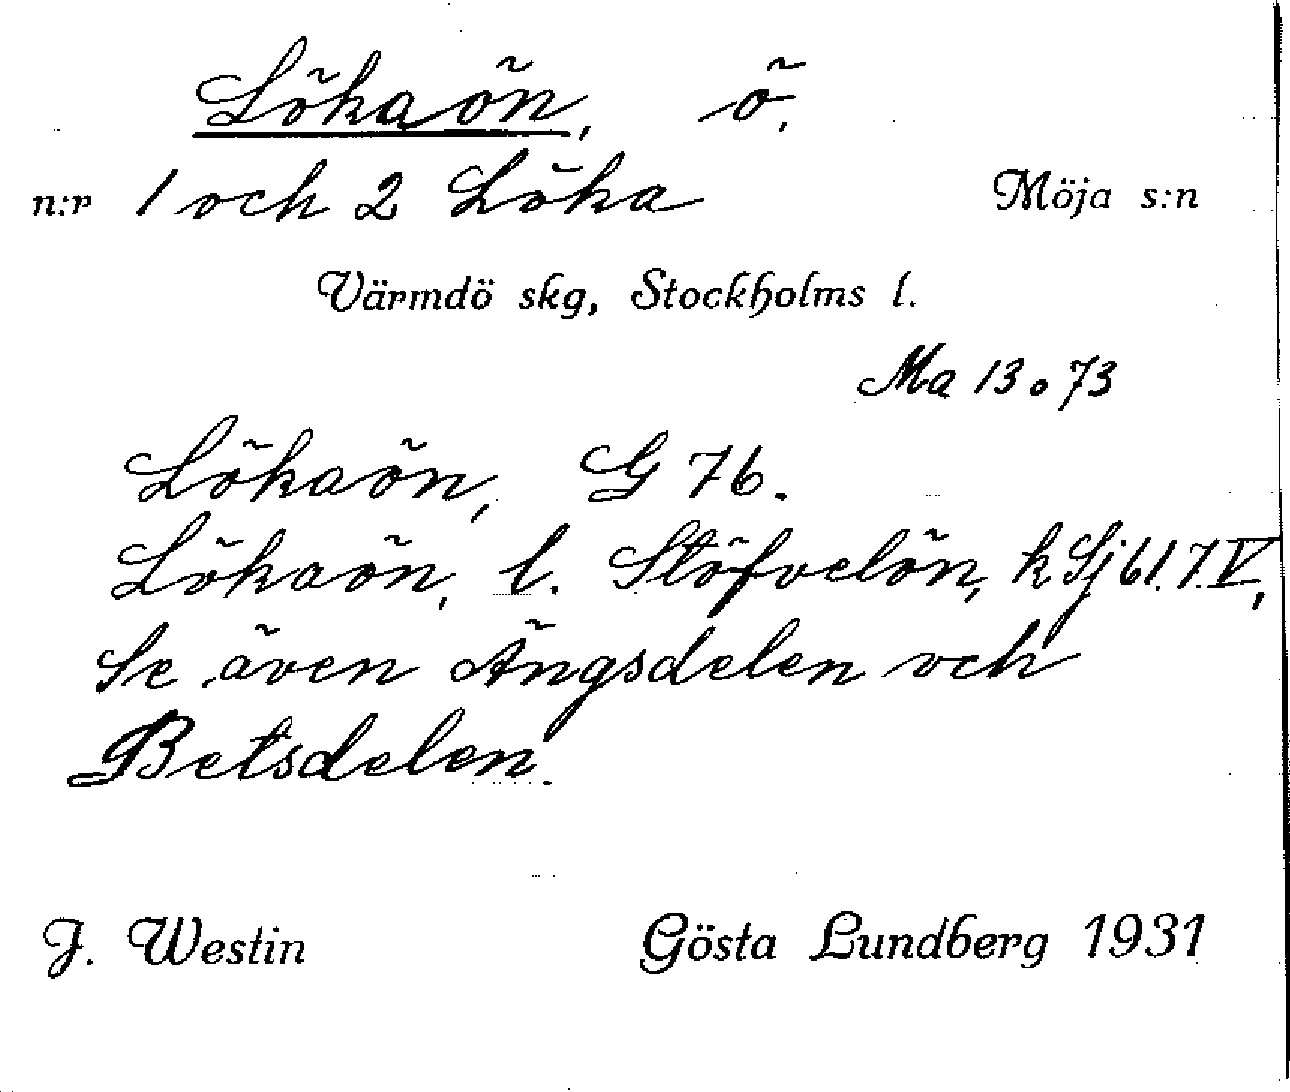 Lökaön, ö.
n:r 1 och 2 Löka Möja s:n
Värmdö skg, Stockholms l.
Ma 13 o 73
Lökaön, G 76.
Lökaön, l. Stöfvelön, k Sj 61.7.V,
Se även Ängsdelen och
Betsdelen.
J. Westin Gösta Lundberg 1931